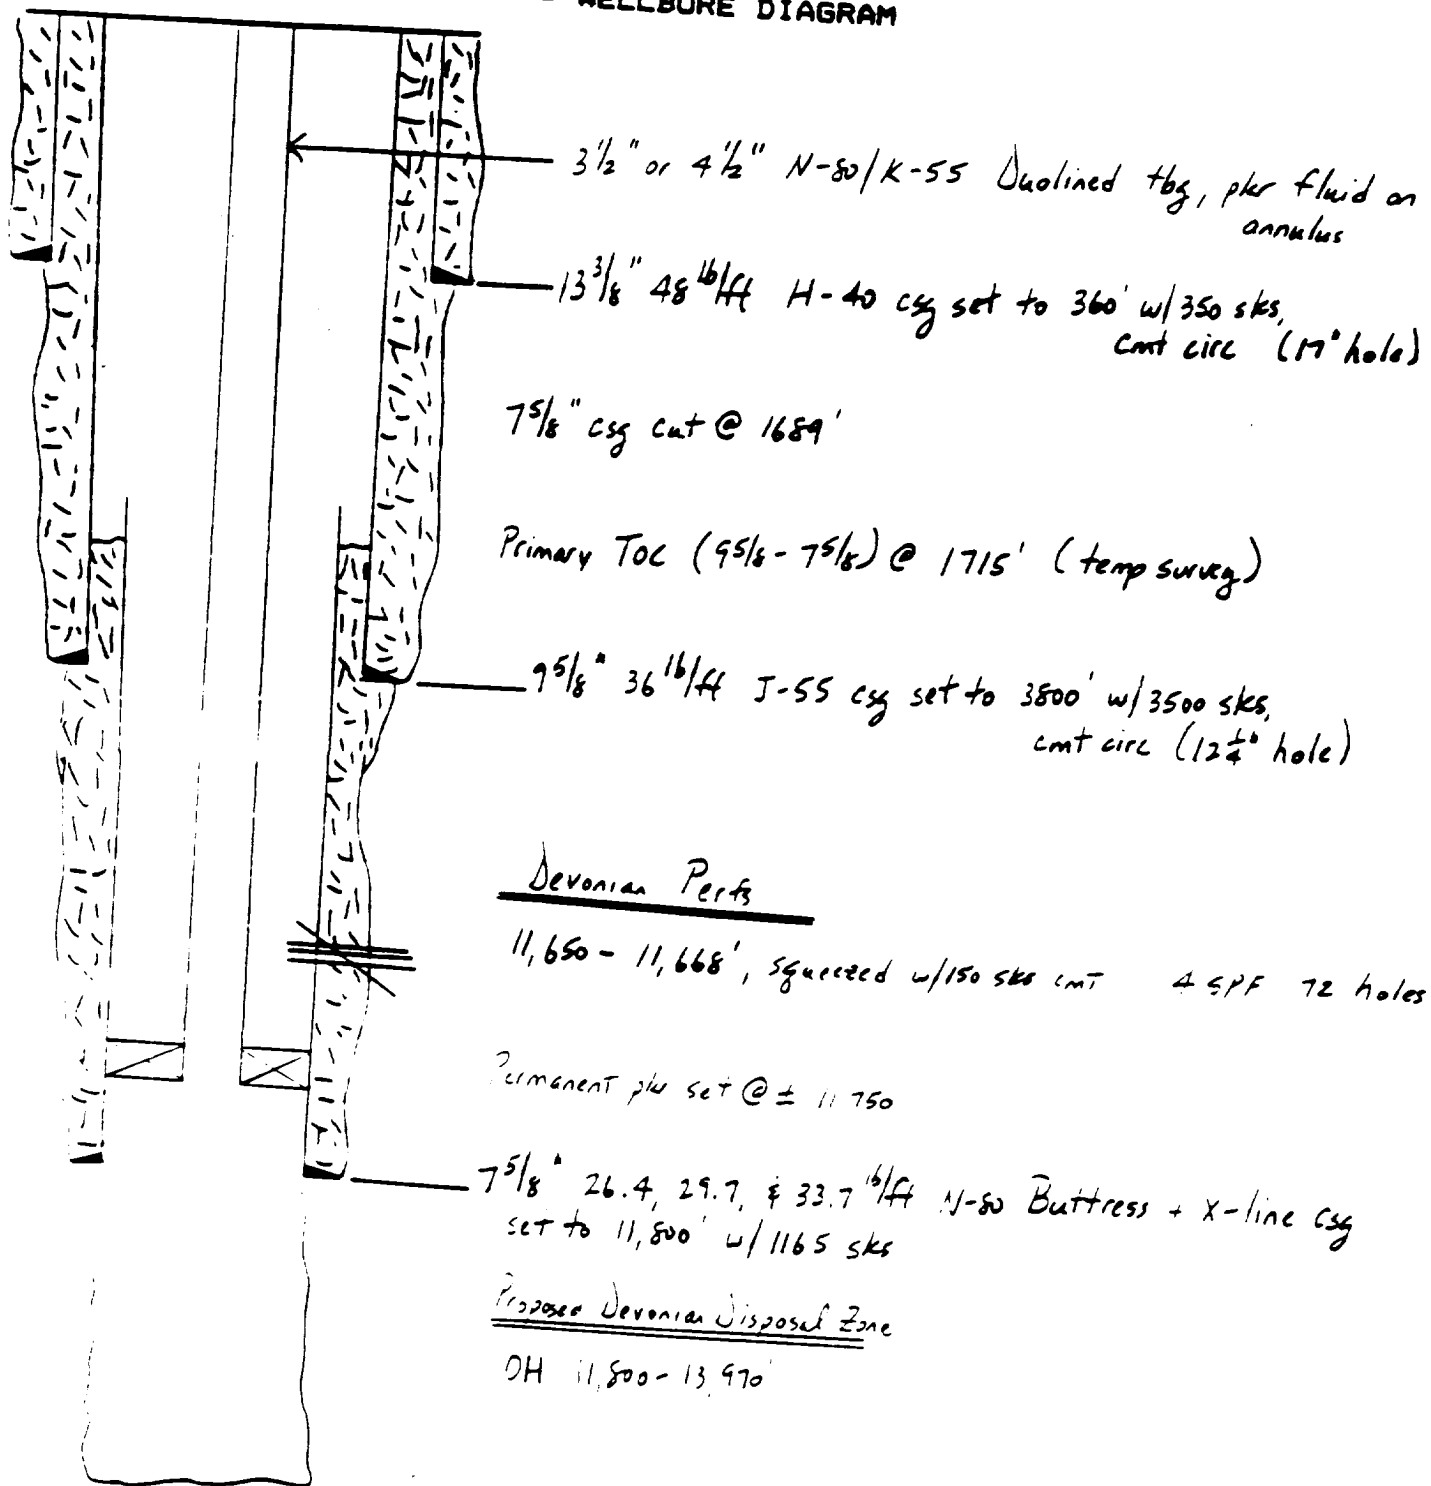 WELLBORE DIAGRAM
3 1/2" or 4 1/2" N-80/K-55 Duolined tbg, pkr fluid on
annulus
13 3/8" 48 lb/ft H-40 csg set to 360' w/350 sks,
cmt circ (17" hole)
7 5/8" csg cut @ 1689'
Primary TOC (9 5/8 - 7 5/8) @ 1715' (temp survey)
9 5/8" 36 lb/ft J-55 csg set to 3800' w/3500 sks,
cmt circ (12 1/4" hole)
Devonian Perfs
11,650 - 11,668', squeezed w/150 sks cmt 4 SPF 72 holes
Permanent pkr set @ ± 11 750
7 5/8" 26.4, 29.7, & 33.7 lb/ft N-80 Buttress + X-line csg
set to 11,800' w/1165 sks
Proposed Devonian Disposal Zone
OH 11,800 - 13,970'